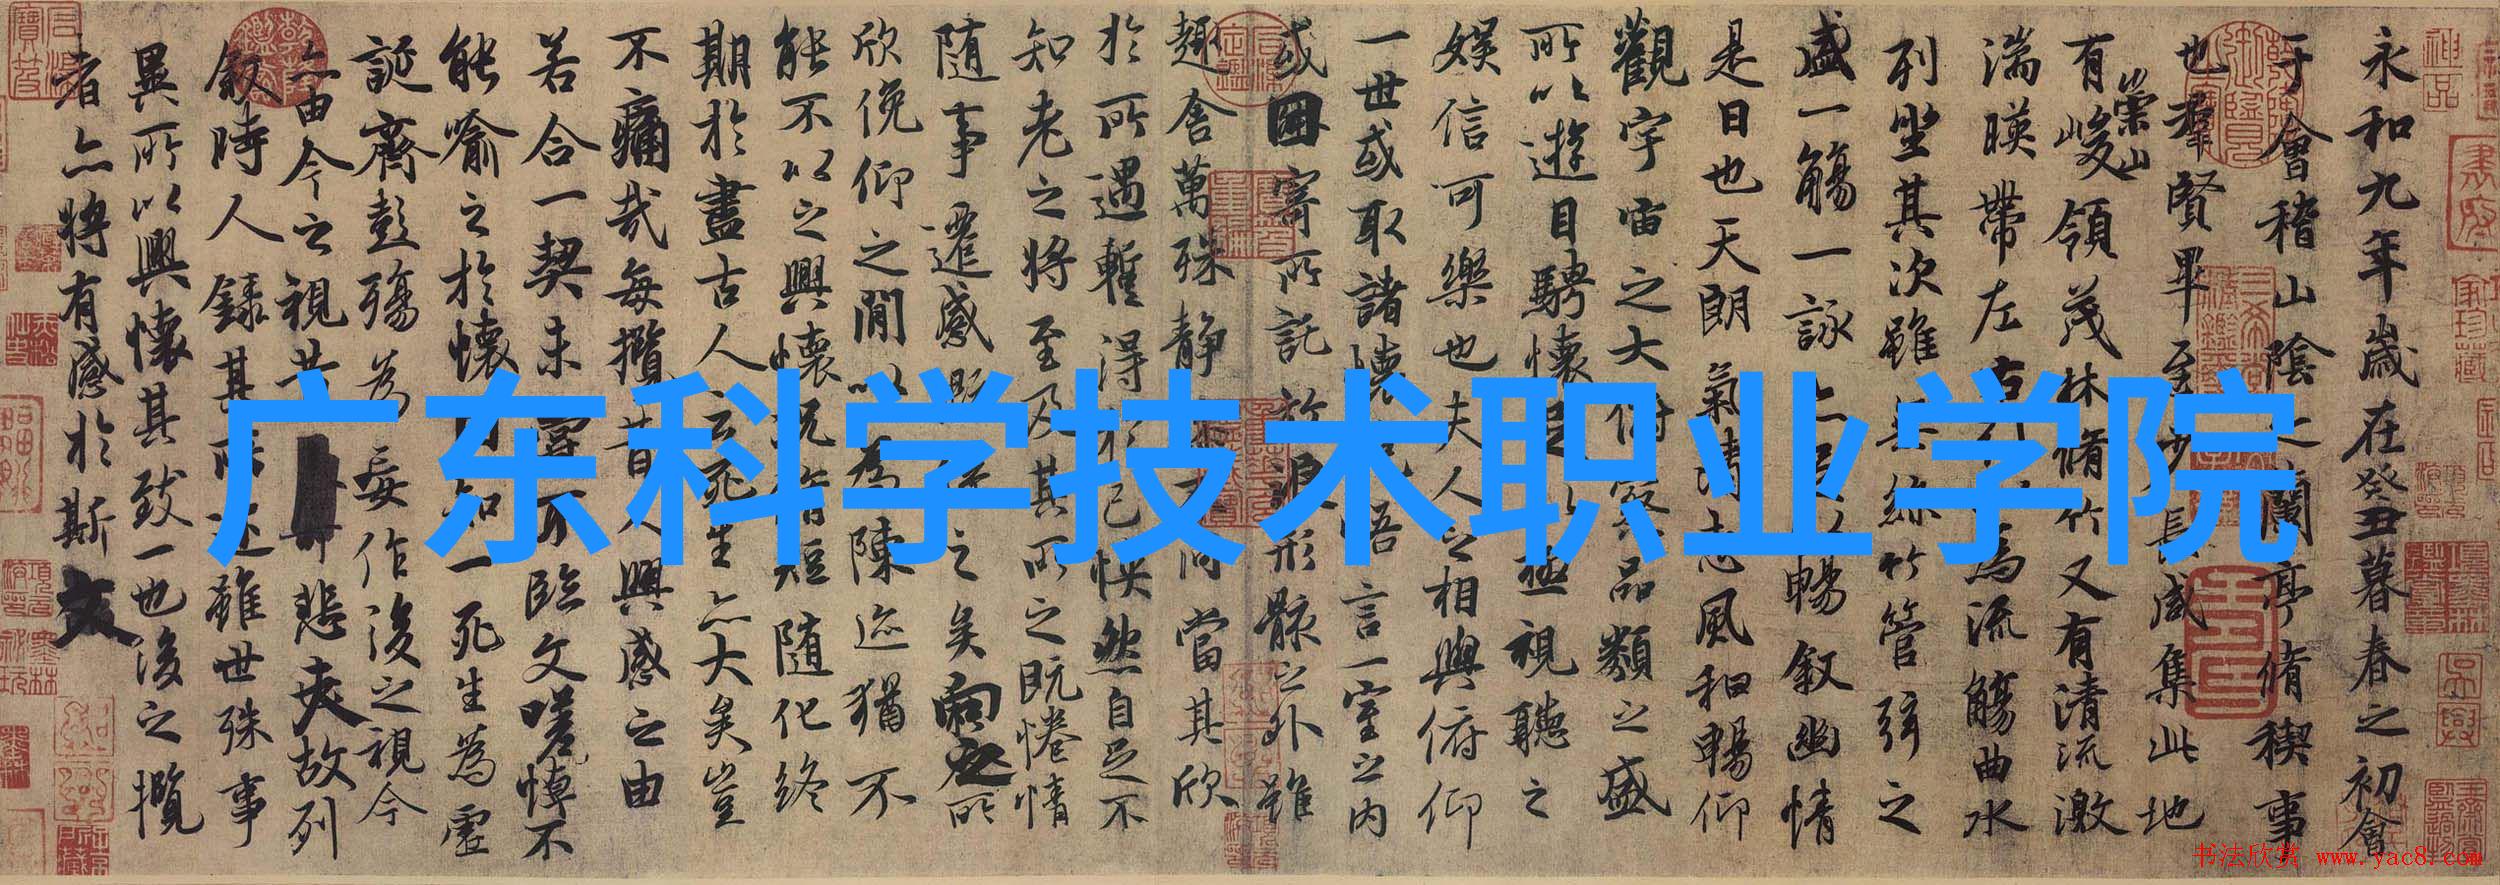 广东科学技术职业学院
永和九年歲在癸丑暮春之初會
于會稽山陰之蘭亭脩稧事
也羣賢畢至少長咸集此地
有崇山峻領茂林脩竹又有清流激
湍暎帶左右引以為流觴曲水
列坐其次雖無絲竹管弦之
盛一觴一詠亦足以暢敘幽情
是日也天朗氣清惠風和暢仰
觀宇宙之大俯察品類之盛
所以遊目騁懷足以極視聽之
娛信可樂也夫人之相與俯仰
一世或取諸懷抱悟言一室之內
或因寄所託放浪形骸之外雖
趣舍萬殊静躁不同當其欣
於所遇蹔得於己怏然自足不
知老之將至及其所之既惓情
随事遷感慨係之矣向之所
欣俛仰之閒以為陳迹猶不
能不以之興懷況脩短随化終
期於盡古人云死生亦大矣豈
不痛哉每攬昔人興感之由
若合一契未甞不臨文嗟悼不
能喻之於懷固知一死生為虛
誕齊彭殤為妄作後之視今
亦由今之視昔悲夫故列
敘時人錄其所述雖世殊事
異所以興懷其致一也後之攬
者亦將有感於斯文
书法欣赏 www.yac8.com